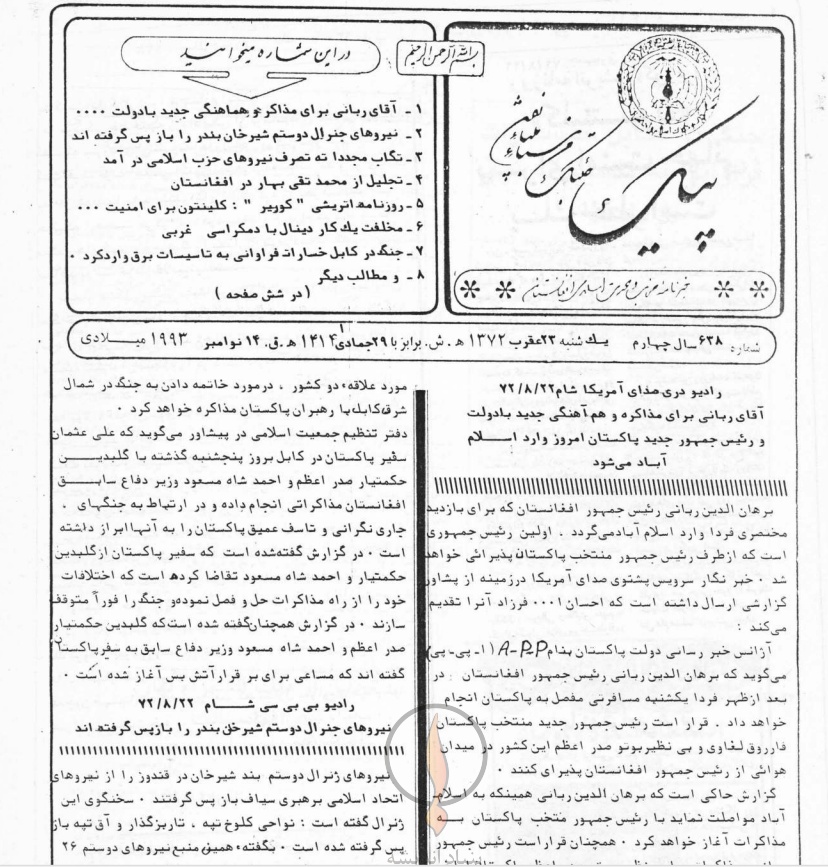 بسم الله الرحمن الرحیم
در این شماره میخوانید
۱ - آقای ربانی برای مذاکره و هماهنگی جدید بادولت ....
۲ - نیروهای جنرال دوستم شیرخان بندر را باز پس گرفته اند
۳ - تگاب مجددا به تصرف نیروهای حزب اسلامی در آمد
۴ - تجلیل از محمد تقی بهار در افغانستان
۵ - روزنامه اتریشی " کوریر " : کلینتون برای امنیت ...
۶ - مخلفت یك کار دینال با دمکراسی غربی
۷ - جنگ در کابل خسارات فراوانی به تاسیسات برق وارد کرد .
۸ - و مطالب دیگر
( در شش صفحه )
پیک
خبرنامه حزبی و حرکت اسلامی افغانستان
شماره ۶۳۸ سال چهارم یك شنبه ۲۳ عقرب ۱۳۷۲ ه . ش . برابر با ۲۹ جمادی ۱ ۱۴۱۴ ه . ق . ۱۴ نوامبر ۱۹۹۳ میلادی
رادیو دری صدای آمریکا شام ۷۲/۸/۲۲
آقای ربانی برای مذاکره و هم آهنگی جدید بادولت
و رئیس جمهور جدید پاکستان امروز وارد اسلام
آباد می‌شود
برهان الدین ربانی رئیس جمهور افغانستان که برای بازدید
مختصری فردا وارد اسلام آباد می‌گردد . اولین رئیس جمهوری
است که از طرف رئیس جمهور منتخب پاکستان پذیرائی خواهد
شد . خبر نگار سرویس پشتوی صدای آمریکا در زمینه از پشاور
گزارشی ارسال داشته است که احسان ا... فرزاد آنرا تقدیم
می‌کند :
آژانس خبر رسانی دولت پاکستان بنام A-P-P (ا - پی - پی)
می‌گوید که برهان الدین ربانی رئیس جمهور افغانستان . در
بعد از ظهر فردا یکشنبه مسافرتی مفصل به پاکستان انجام
خواهد داد . قرار است رئیس جمهور جدید منتخب پاکستان
فارروق لغاوی و بی نظیر بوتو صدر اعظم این کشور در میدان
هوائی از رئیس جمهور افغانستان پذیرای کنند .
گزارش حاکی است که برهان الدین ربانی همینکه به اسلام
آباد مواصلت نماید با رئیس جمهور منتخب پاکستان به
مذاکرات آغاز خواهد کرد . همچنان قرار است رئیس جمهور
مورد علاقه دو کشور ، در مورد خاتمه دادن به جنگ در شمال
شرق کابل با رهبران پاکستان مذاکره خواهد کرد .
دفتر تنظیم جمعیت اسلامی در پیشاور می‌گوید که علی عثمان
سفیر پاکستان در کابل بروز پنجشنبه گذشته با گلبدین
حکمتیار صدر اعظم و احمد شاه مسعود وزیر دفاع سابق
افغانستان مذاکراتی انجام داده و در ارتباط به جنگهای .
جاری نگرانی و تاسف عمیق پاکستان را به آنها ابراز داشته
است . در گزارش گفته شده است که سفیر پاکستان از گلبدین
حکمتیار و احمد شاه مسعود تقاضا کرده است که اختلافات
خود را از راه مذاکرات حل و فصل نموده و جنگ را فوراً متوقف
سازند . در گزارش همچنان گفته شده است که گلبدین حکمتیار
صدر اعظم و احمد شاه مسعود وزیر دفاع سابق به سفیر پاکستان
گفته اند که مساعی برای بر قراری آتش بس آغاز شده است .
رادیو بی بی سی شام ۷۲/۸/۲۲
نیروهای جنرال دوستم شیرخان بندر را باز پس گرفته اند
نیروهای ژنرال دوستم بند شیرخان در قندوز را از نیروهای
اتحاد اسلامی برهبری سیاف باز پس گرفتند . سخنگوی این
ژنرال گفته است : نواحی کلوخ تپه ، تاربزگذار و آق تپه باز
پس گرفته شده است . بگفته همین منبع نیروهای دوستم ۲۶